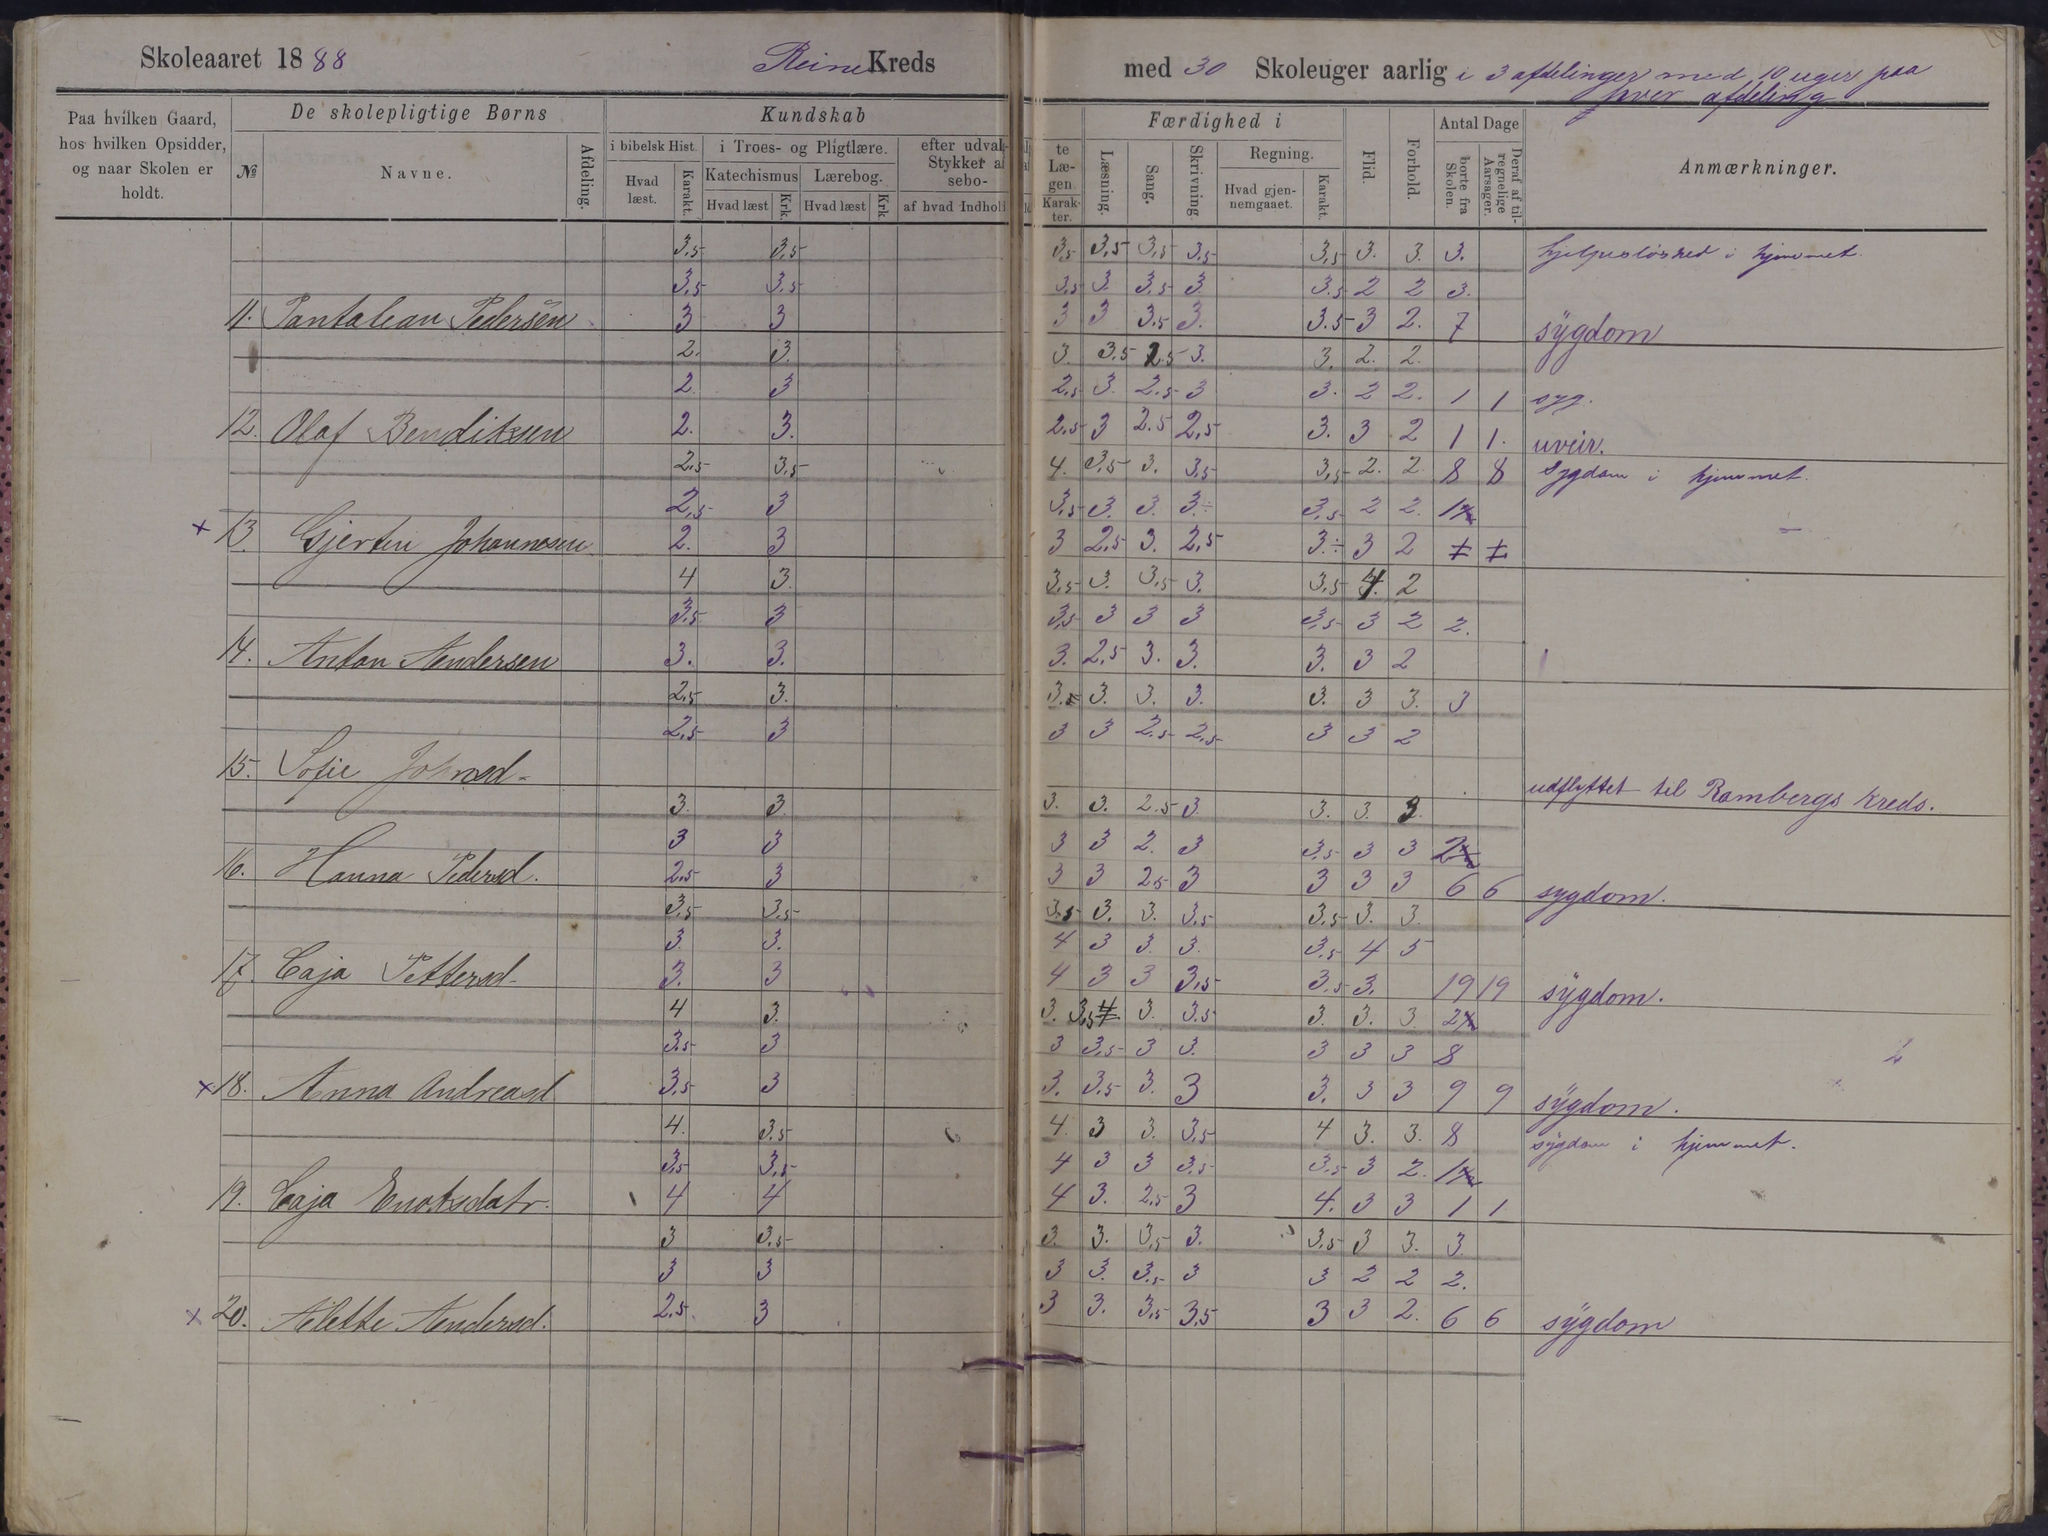 Skoleaaret 1888 Reine Kreds med 30 Skoleuger aarlig i 3 afdelinger med 10 uger paa
hver afdeling
Paa hvilken Gaard, hos hvilken Opsidder, og naar Skolen er holdt.
De skolepligtige Børns
№ Navne. Afdeling.
Kundskab
i bibelsk Hist. i Troes- og Pligtlære. efter udval- Stykker af sebo-
Hvad læst. Karakt. Katechismus Lærebog.
Hvad læst Krk. Hvad læst Krk. af hvad Indhold
te Læ- gen Karak- ter.
Færdighed i
Læsning. Sang. Skrivning Regning.
Hvad gjen- nemgaaet. Karakt.
Flid. Forhold.
Antal Dage
borte fra Skolen. Deraf af til- regnelige Aarsager.
Anmærkninger.
3,5 3,5 3,5 3,5 3,5 3,5 3,5 3. 3. 3. hjelpesløshed i hjemmet
3,5 3,5 3,5 3. 3,5 3 3,5 2 2 3.
11. Pantalean Pedersen 3 3 3 3 3,5 3. 3.5 3 2. 7 sygdom
2. 3. 3. 3.5 2.5 3. 3. 2. 2.
2. 3 2,5 3. 2,5 3 3. 2 2. 1 1 syg.
12. Olaf Bendiksen 2. 3. 2,5 3 2.5 2,5 3. 3 2 1 1. uveir.
2,5 3,5 4. 3,5 3. 3,5 3,5 2. 2. 8 8 Sygdom i hjemmet.
2,5 3 3,5 3. 3. 3.÷ 3,5 2 2. 1
× 13. Gjertin Johannesen 2. 3 3 2,5 3. 2,5 3.÷ 3 2
4 3. 3,5 3. 3,5 3. 3,5 4. 2
3.5 3 3,5 3 3 3 3,5 3 2 2.
14. Anton Andersen 3. 3. 3. 2,5 3. 3. 3. 3 2
2,5 3. 3. 3. 3. 3. 3. 3 3. 3
2,5 3 3 3 2,5 2,5 3 3 2
15. Sofie Johnsd. udflyttet til Rambergs kreds.
3. 3. 3. 3. 2.5 3. 3. 3. 3.
3 3 3 3 2. 3 3,5 3 3 2
16. Hanna Pedersd. 2,5 3 3 3 2,5 3 3 3 3 6 6 sygdom.
3,5 3,5 3,5 3. 3. 3,5 3,5 3. 3.
3. 3. 4 3 3. 3. 3,5 4 5
17. Caja Pettersd. 3. 3 4 3 3 3,5 3,5 3. 19 19 sygdom.
4 3. 3. 3,5 3. 3.5 3. 3. 3. 2
3.5 3 3 3,5 3 3. 3 3 3 8
× 18. Anna Andreasd 3,5 3 3. 3,5 3. 3 3. 3 3 9 9 sygdom.
4. 3.5 4. 3 3. 3,5 4 3. 3. 8 sygdom i hjemmet.
3,5 3,5 4 3 3 3,5 3,5 3 2. 1
19. Caja Enoksdatr. 4 4 4 3. 2,5 3 4. 3 3 1 1.
3 3.5 3. 3. 3,5 3. 3,5 3 3. 3.
3 3 3 3. 3,5 3 3 2 2 2.
× 20. Alette Andersd. 2.5 3 3 3. 3,5 3,5 3 3 2. 6 6 sygdom